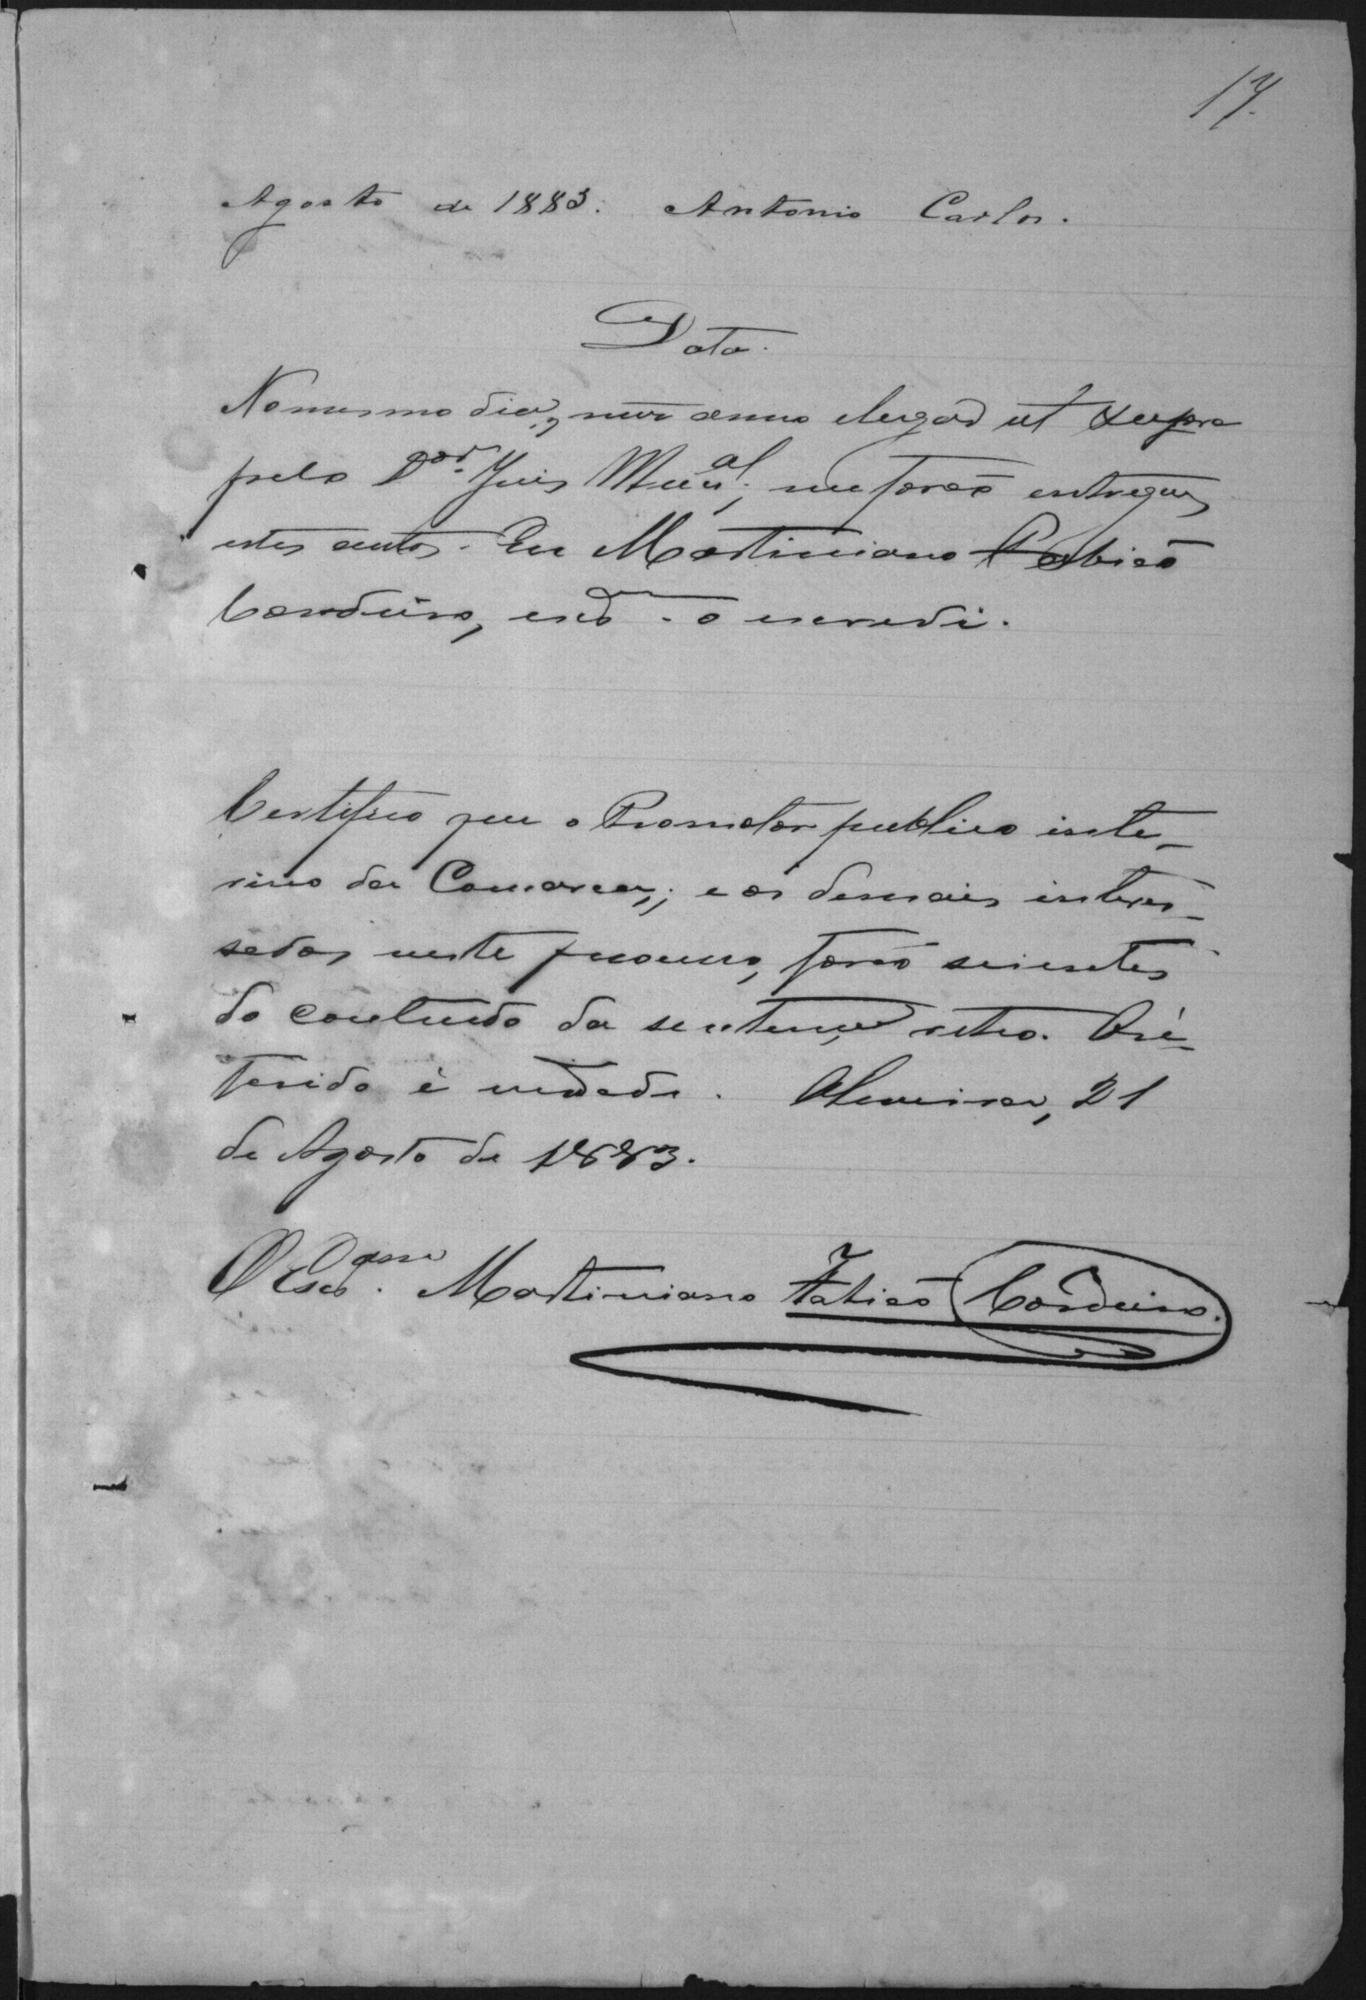 17.
Agosto de 1883. Antonio Carlos.
Data.
No mesmo dia, mez anno e lugar ut supra
pelo Dor. Juis Mun.al; me forão entregues
estes autos. Eu Martiniano Fabião
Cordeiro, esc.ão o escrevi.
Certifico que o Promotor publico inte-
rino da Comarca, e os demais interes-
sados neste processo, forão scientes
do contendo da sentença retro. O re-
ferido é verdade. 21
de Agosto de 1883.
O Escão. Martiniano Fabião Cordeiro.